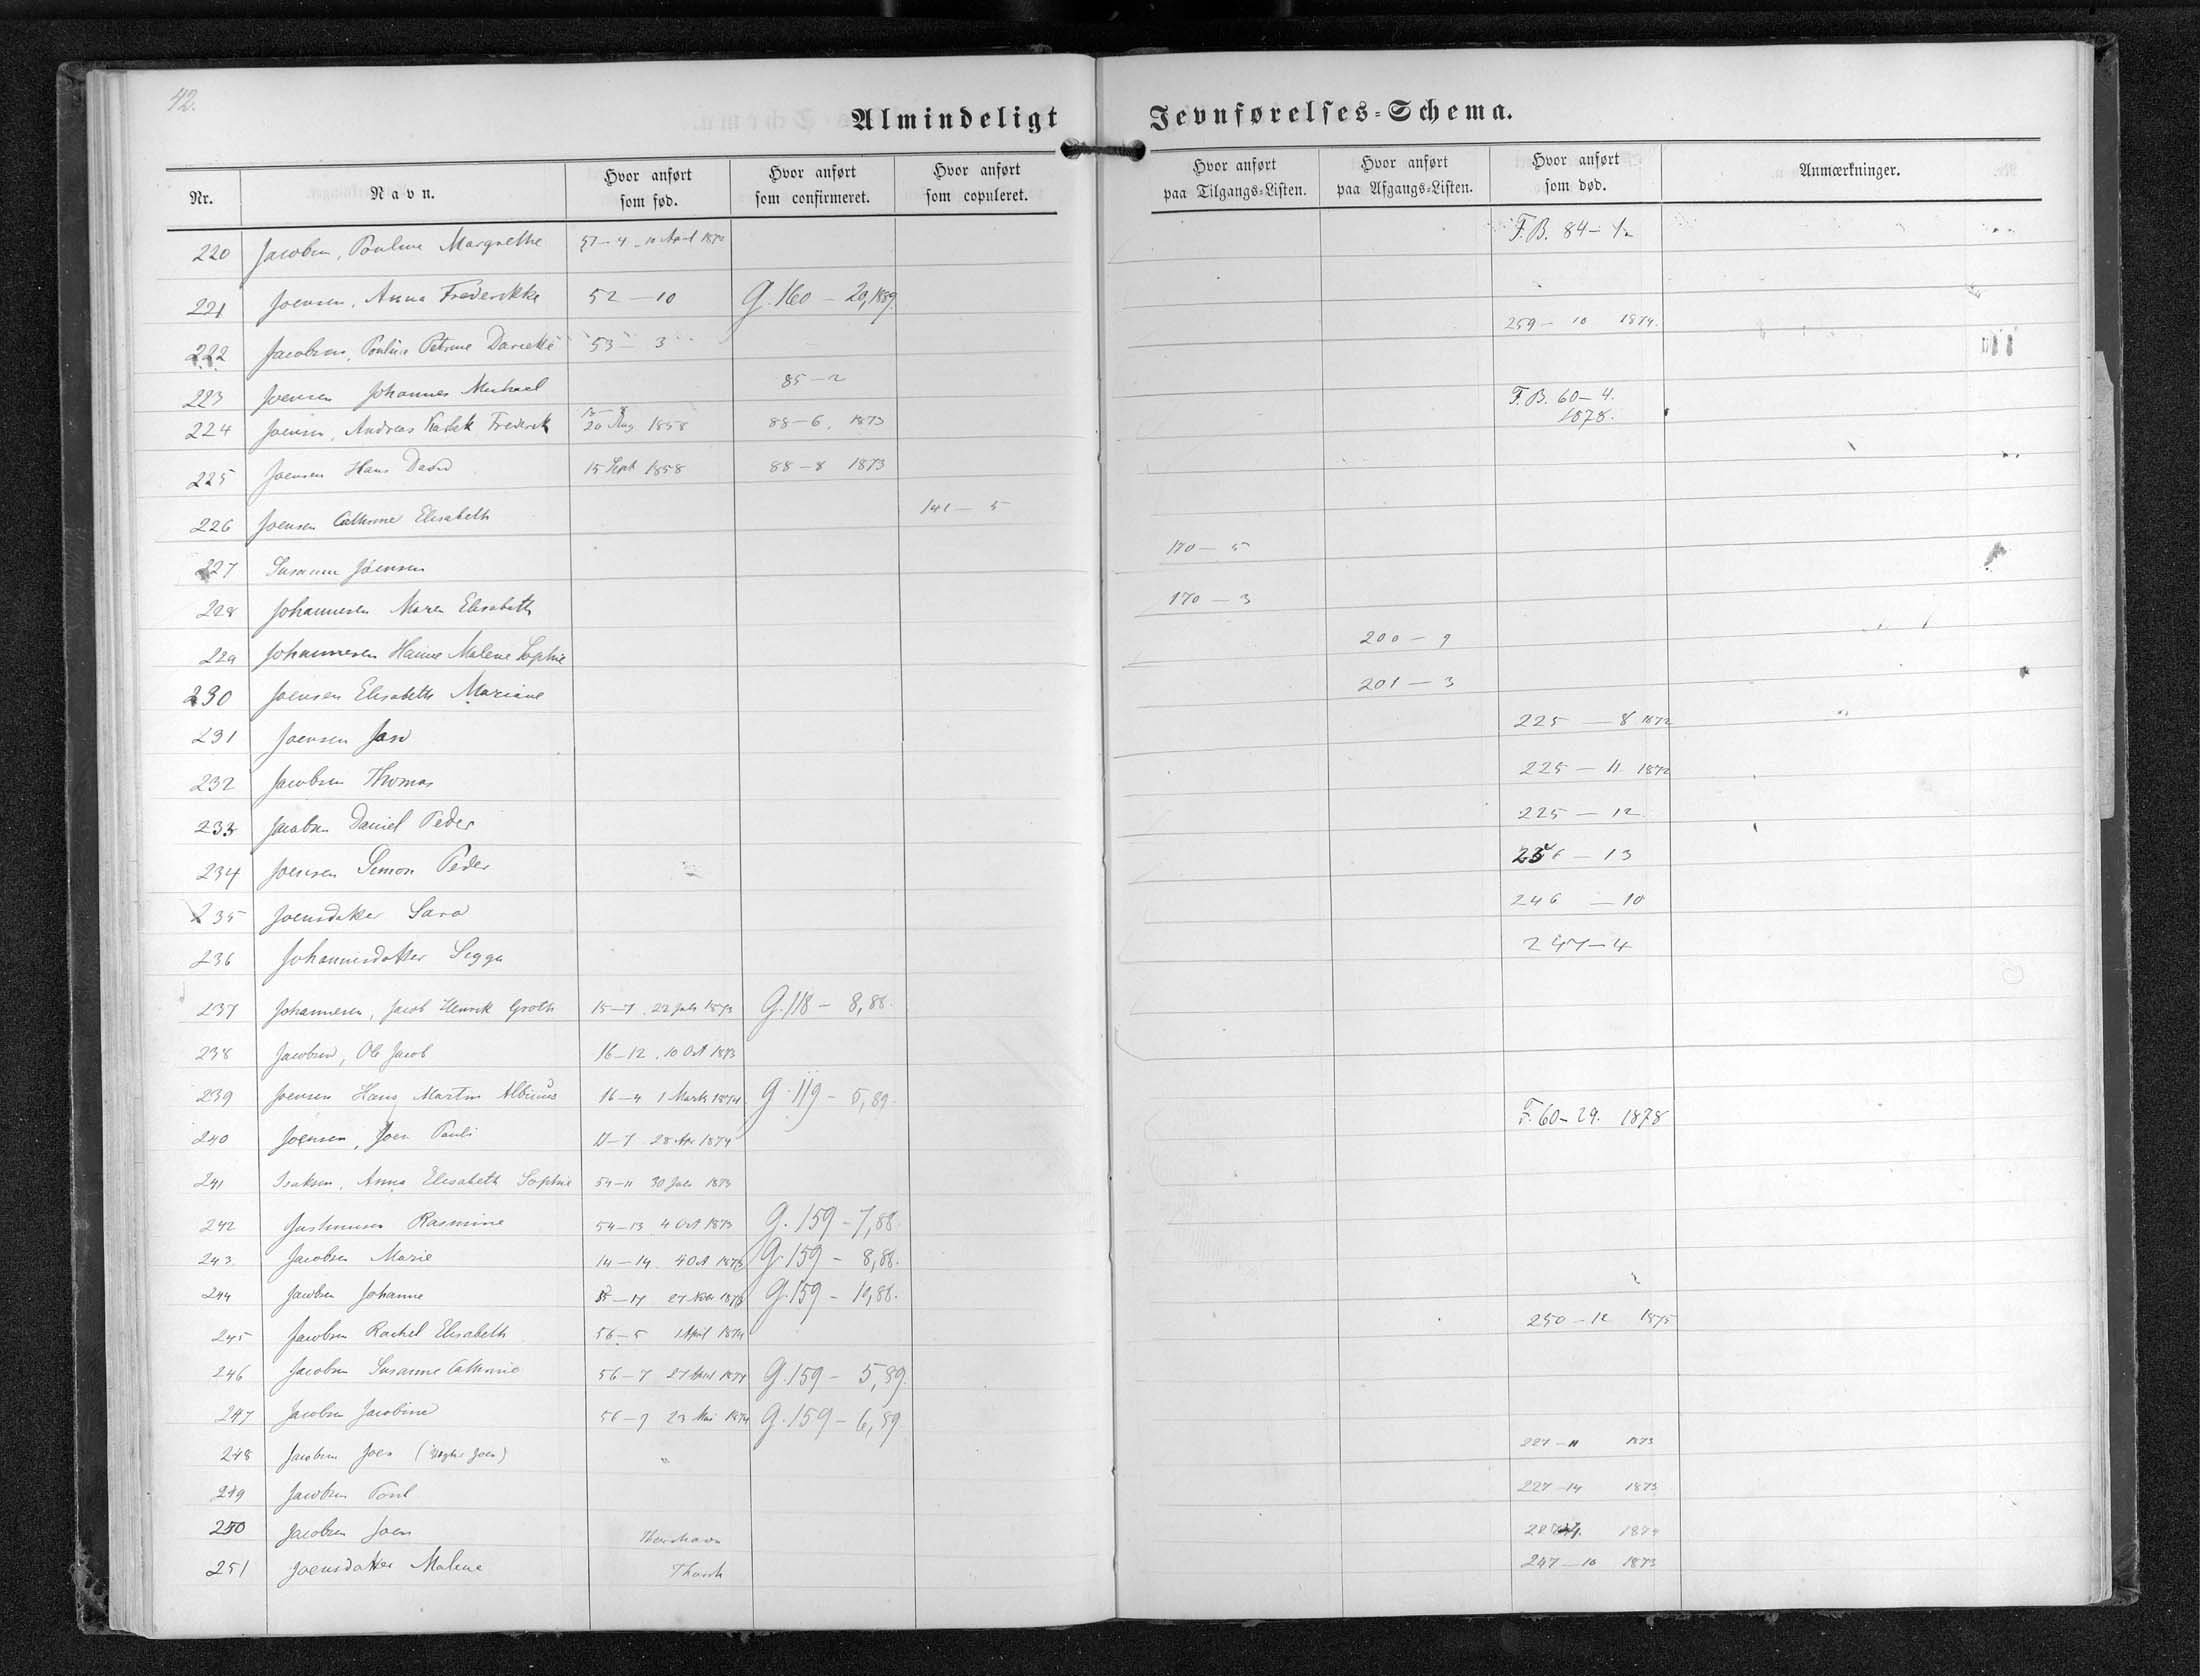 42.
Almindeligt Jevnførelses-Schema.
Nr. Navn. Hvor anført som fød. Hvor anført som confirmeret. Hvor anført som copuleret. Hvor anført paa Tilgangs-Listen. Hvor anført paa Afgangs-Listen. Hvor anført som død. Anmærkninger.
220 Jacobsen, Pouline Margrethe 51-4 10 April F.B. 84-
221 Joensen, Anna Frederikke 52-10 G. 160 - 20, 1889.
222 Jacobsen, Petrine 53-3 259-10 1874.
223 Joensen Johannes Michael 85-2
224 Joensen, Andreas Frederik 20 Aug 1858 88-6. 1873 F.B. 60-4. 1878.
225 Joensen Hans David 15 Sept 1858 88-8 1873
226 Joensen Cathrine Elisabeth 141-5
227 Susanne Jöensen 170-5
228 Johannesen Maren Elisabeth 170-3
229 Johannesen Hanne Malene Sophie 200-9
230 Joensen Elisabeth Mariane 201-3
231 Joensen 225-8 1872
232 Jacobsen Thomas 225-11 1872
233 Jacobsen Daniel Peder 225-12
234 Joensen Simon Peder -13
235 Joensdatter Sara 246-10
236 Johannesdatter Sigga 247-4
237 Johannesen, Jacob Henrik Groth 15-7. 22 Juli 1873 G. 118 - 8, 88.
238 Jacobsen, Ole Jacob 16-12. 10 Oct 1873
239 Joensen Hans Martin Albinus 16-4 1 Marts 1874 G. 119 - 5, 89.
240 Joensen, Joen Pauli 17-7 28 Apr 1874 F. 60-29. 1878
241 Isaksen, Anna Elisabeth Sophie 54-11 30 Juli 1873
242 Rasmine 54-13 4 Oct 1873 G. 159 - 7, 88.
243. Jacobsen Marie 14-14. 4 Oct 1873 G. 159 - 8, 88.
244 Jacobsen Johanne -17 27 Nov 1873 G. 159 - 19, 88.
245 Jacobsen Rachel Elisabeth 56-5 1 April 1874 250-12 1875
246 Jacobsen Susanne Cathrine 56-7 27 April 1874 G. 159 - 5, 89.
247 Jacobsen Jacobine 56-9 23 Mai 1874 G. 159 - 6, 89.
248 Jacobsen Joen ( Joen) " 227-11 1873
249 Jacobsen Poul 227-14 1873
250 Jacobsen Joen Thorshavn 1874
251 Joensdatter Malene Thorsh 247-10 1873